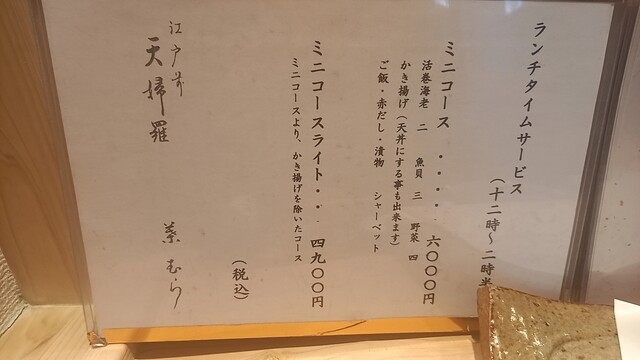 ランチタイムサービス
(十二時〜二時半
ミニコース ・・・・ 六〇〇〇円
活巻海老 二 魚貝 三 野菜 四
かき揚げ(天丼にする事も出来ます)
ご飯・赤だし・漬物 シャーベット
ミニコースライト・・・ 四九〇〇円
ミニコースより、かき揚げを除いたコース
(税込)
江戸前
天婦羅
むら